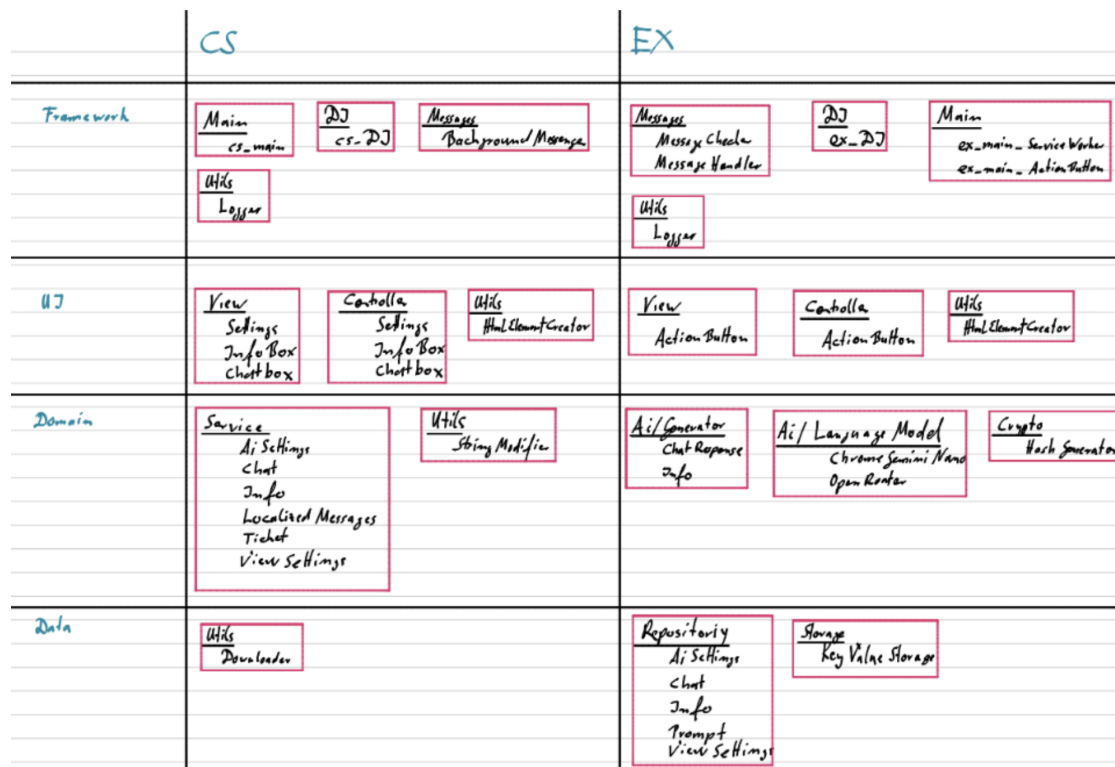 CS
EX
Framework
Main
cs_main
DI
cs_DI
Messages
Background Messenger
Utils
Logger
Messages
Message Checker
Message Handler
DI
ex_DI
Main
ex_main_ServiceWorker
ex_main_ActionButton
Utils
Logger
UI
View
Settings
InfoBox
Chatbox
Controller
Settings
InfoBox
Chatbox
Utils
HtmlElementCreator
View
ActionButton
Controller
ActionButton
Utils
HtmlElementCreator
Domain
Service
Ai Settings
Chat
Info
Localized Messages
Ticket
View Settings
Utils
String Modifier
Ai/Generator
Chat Reponse
Info
Ai/ Language Model
Chrome Gemini Nano
Open Router
Crypto
Hash Generator
Data
Utils
Downloader
Repositoriy
Ai Settings
Chat
Info
Prompt
View Settings
Storage
Key Value Storage